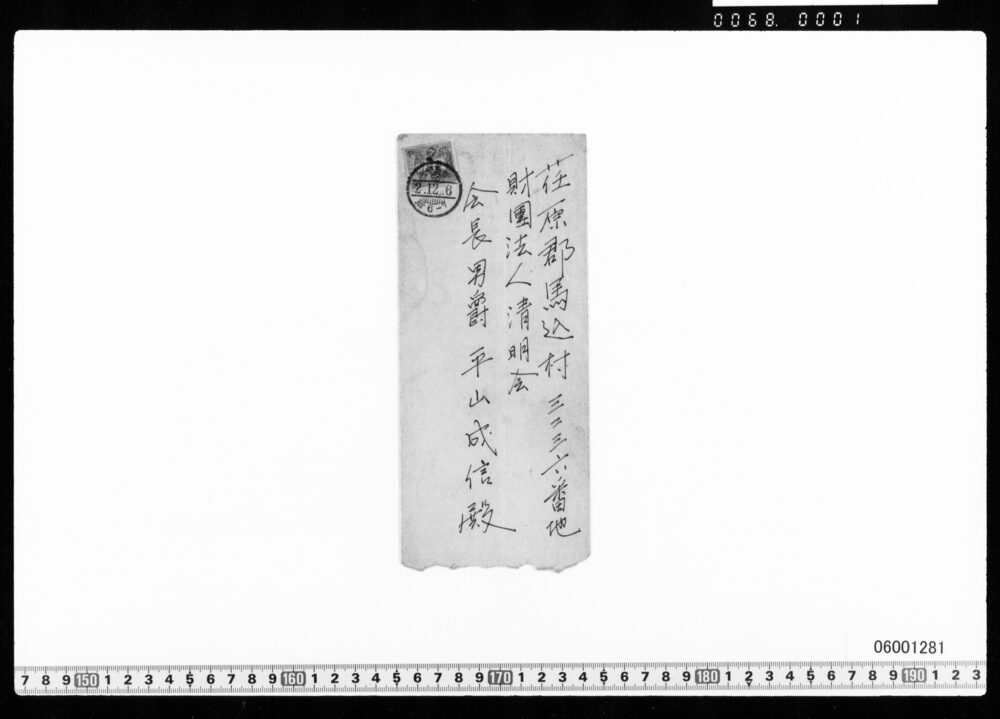 0068.0001
荏原郡馬込村三二三六番地
財團法人清明会
会長男爵 平山成信殿
2.12.6
06001281
7 8 9 150 1 2 3 4 5 6 7 8 9 160 1 2 3 4 5 6 7 8 9 170 1 2 3 4 5 6 7 8 9 180 1 2 3 4 5 6 7 8 9 190 1 2 3